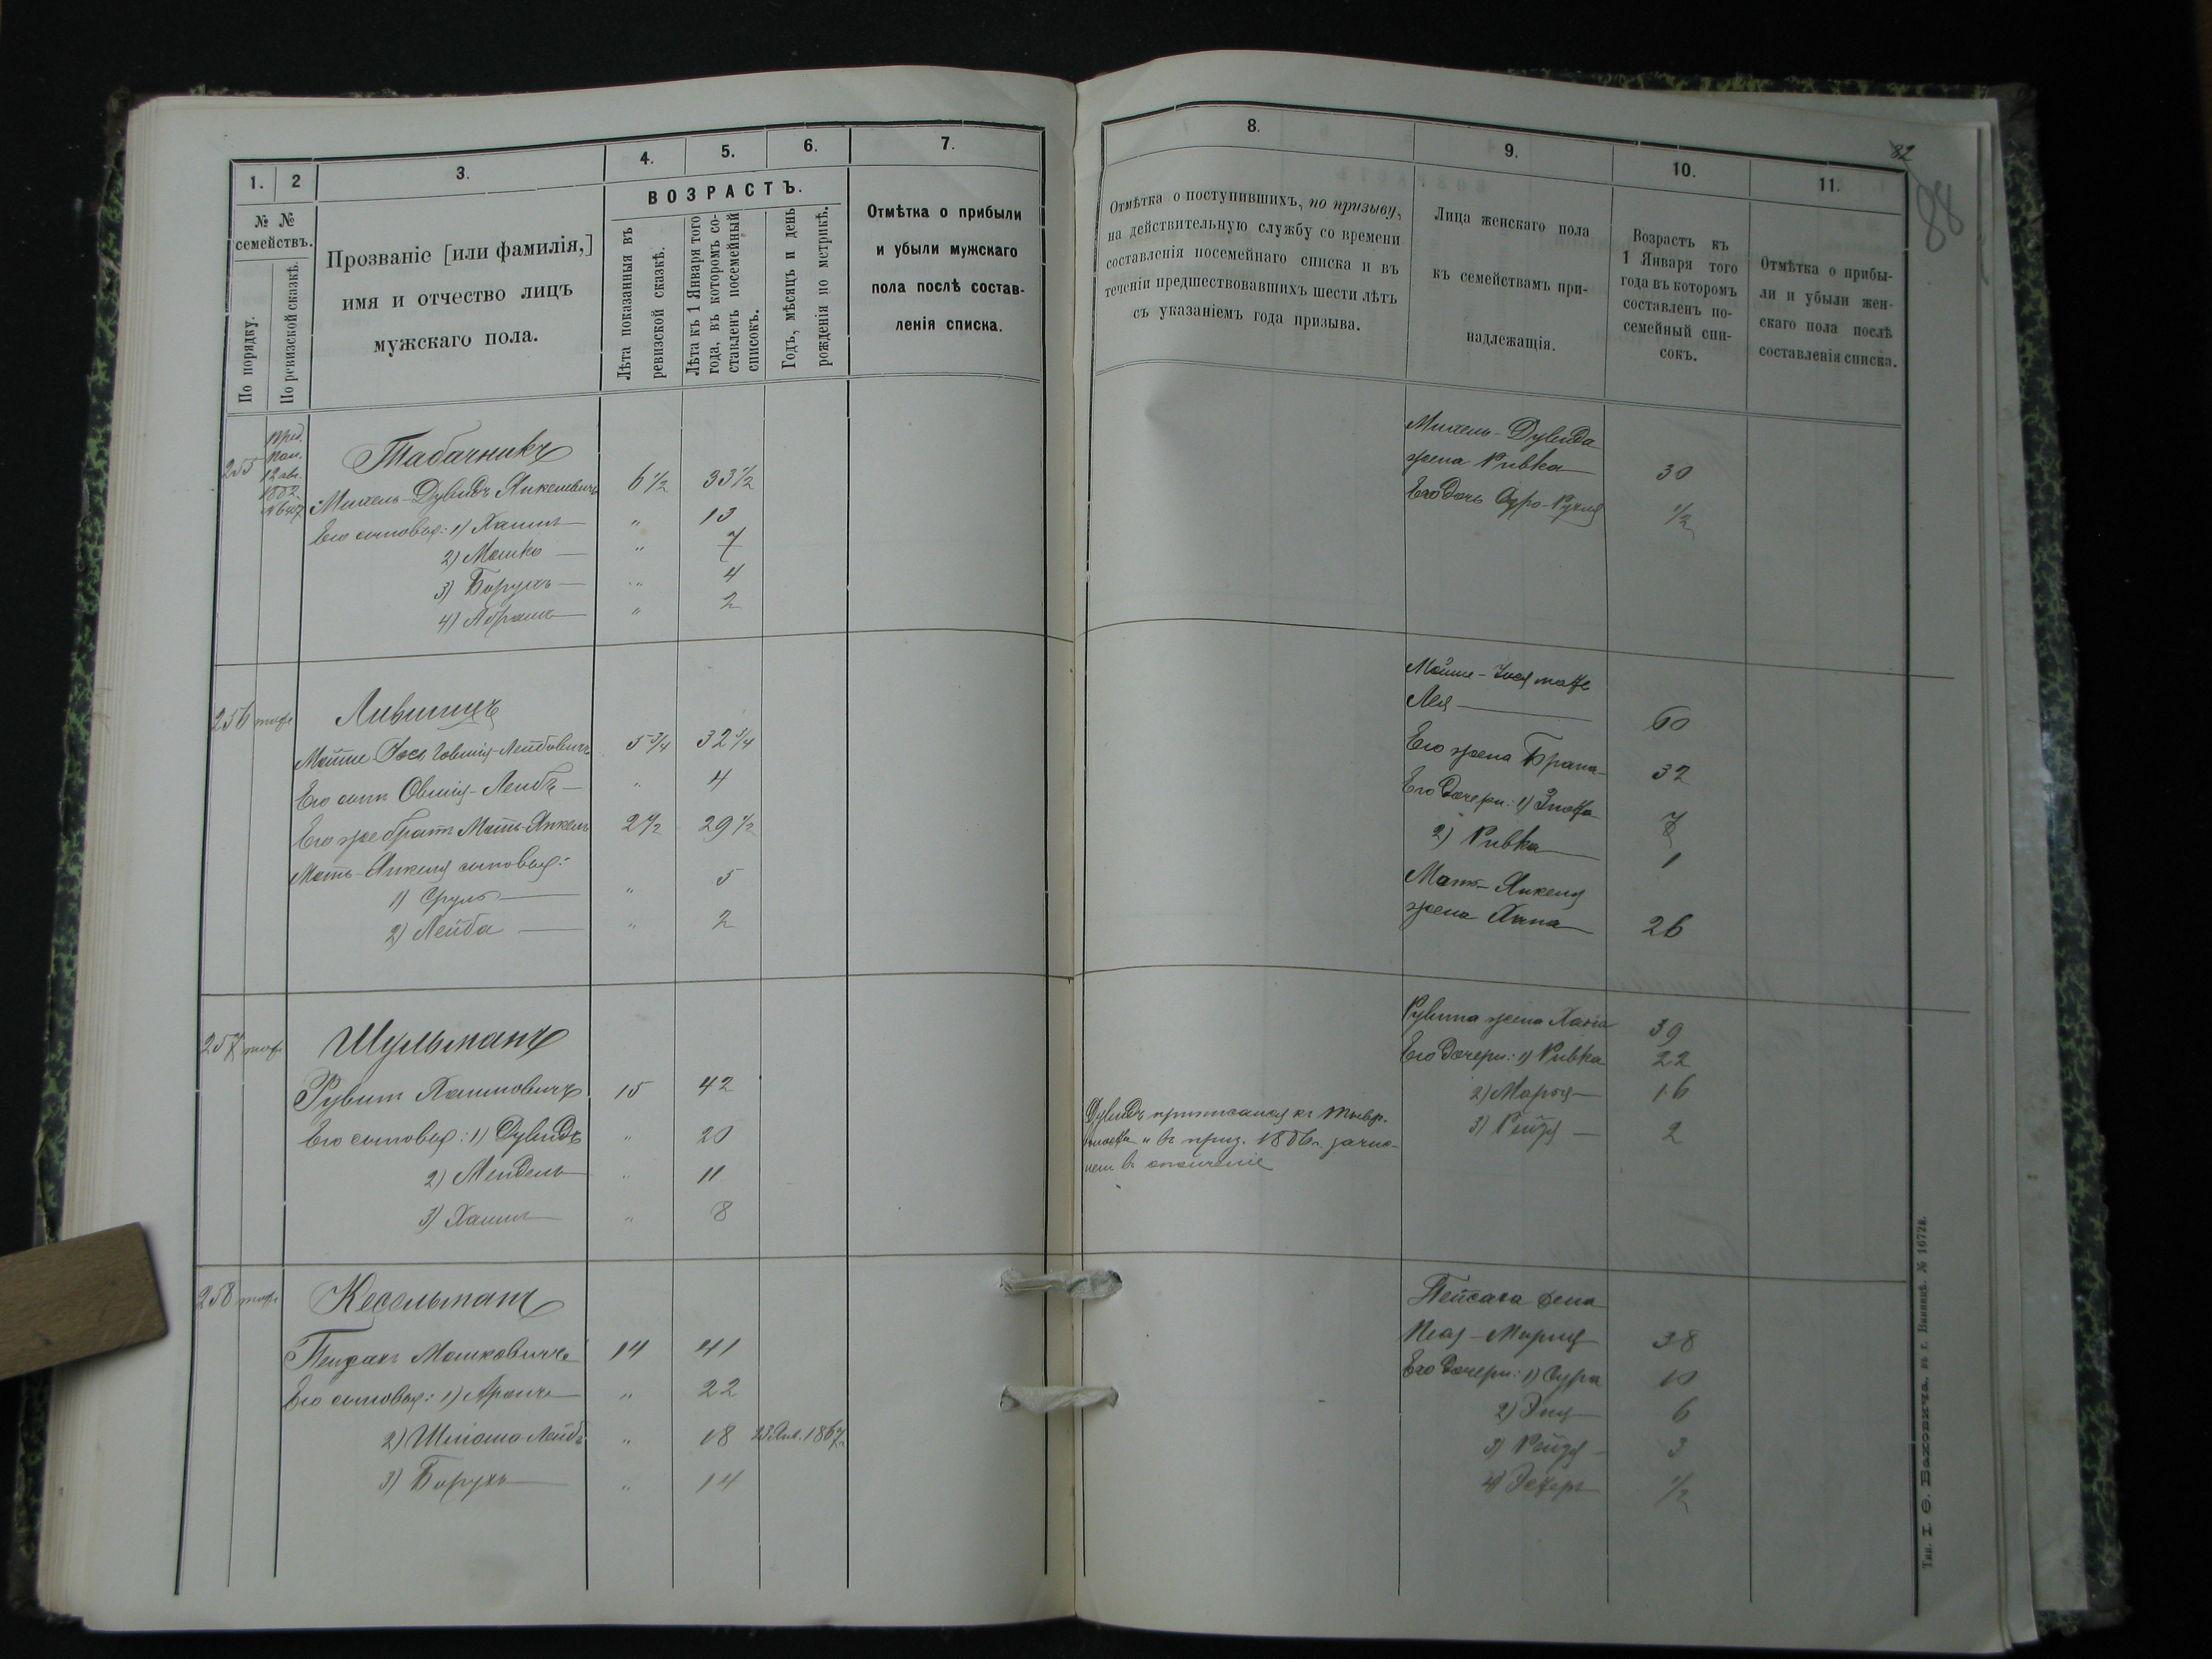 1. 2 3. 4. 5. 6. 7.
№ № семействъ.
По порядку.
По ревизской сказкѣ.
Прозваніе [или фамилія,]
имя и отчество лицъ
мужскаго пола.
ВОЗРАСТЪ.
Лѣта показанныя въ
ревизской сказкѣ.
Лѣта къ 1 Января того
года, въ которомъ со-
ставленъ посемейный
списокъ.
Годъ, мѣсяцъ и день
рожденія по метрикѣ.
Отмѣтка о прибыли
и убыли мужскаго
пола послѣ состав-
ленія списка.
255
1882
Табачникъ
Михель-Дувидъ Янкелевичъ 6½ 33½
Его сыновья: 1) Хаимъ " 13
2) Мошко " 7
3) Борухъ " 4
4) Абрамъ " 2
256 тоже Лившицъ
Мойше Іось Говшія-Лейбовичъ 5¾ 32¾
Его сынъ Овшія-Лейбъ " 4
Его же братъ Моть-Янкель 2½ 29½
Моть-Янкеля сыновья:
1) Сруль " 5
2) Лейба " 2
257 тоже Шульманъ
Рувинъ Хаимовичъ 15 42
Его сыновья: 1) Дувидъ " 20
2) Мендель " 11
3) Хаимъ " 8
258 тоже Кесельманъ
Пейсахъ Мошковичъ 14 41
Его сыновья: 1) Аронъ " 22
2) Шліома-Лейбъ " 18 25 Янв. 1867
3) Борухъ " 14
82
88
8. 9. 10. 11.
Отмѣтка о поступившихъ, по призыву,
на дѣйствительную службу со времени
составленія посемейнаго списка и въ
теченіи предшествовавшихъ шести лѣтъ
съ указаніемъ года призыва.
Лица женскаго пола
къ семействамъ при-
надлежащія.
Возрастъ къ
1 Января того
года въ которомъ
составленъ по-
семейный спи-
сокъ.
Отмѣтка о прибы-
ли и убыли жен-
скаго пола послѣ
составленія списка.
Михель-Дувида
жена Ривка 30
Его дочь Рухля ½
Мойше-Іося мать
Лея 60
Его жена Брана 32
Его дочери: 1) Злота 7
2) Ривка 1
Моть-Янкеля
жена Хана 26
Рувина жена Хана 39
Его дочери: 1) Ривка 22
2) Марья 16
3) Рейзя 2
Дувидъ приписался къ
и въ приз. 1886 г. зачис-
ленъ въ ополченіе
Пейсаха жена
Песя-Марія 38
Его дочери: 1) Сура 10
2) Эня 6
3) Рейзя 3
4) Эстеръ ½
Тип. І. Ѳ. Баховича, въ г. Винницѣ. № 16728.